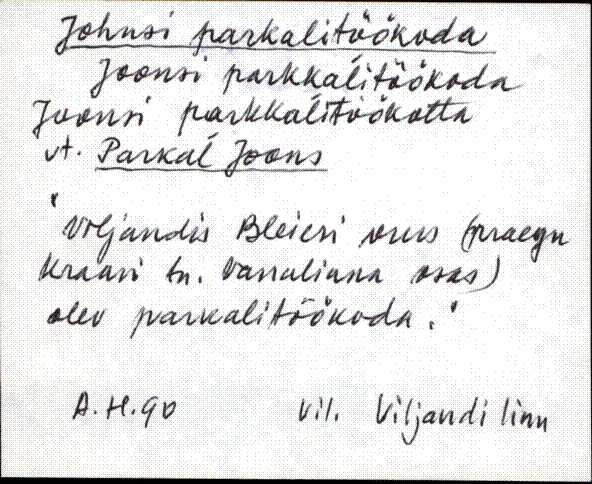 Johnsi parkalitöökoda
Joonsi parkkalitöökoda
Joonsi parkkalitöökotta
vt. Parkal Joons
"Viljandis Bleieri orus (praegu
Kraavi tn. vanalinna osas)
olev parkalitöökoda."
A.H.90 Vil. Viljandi linn